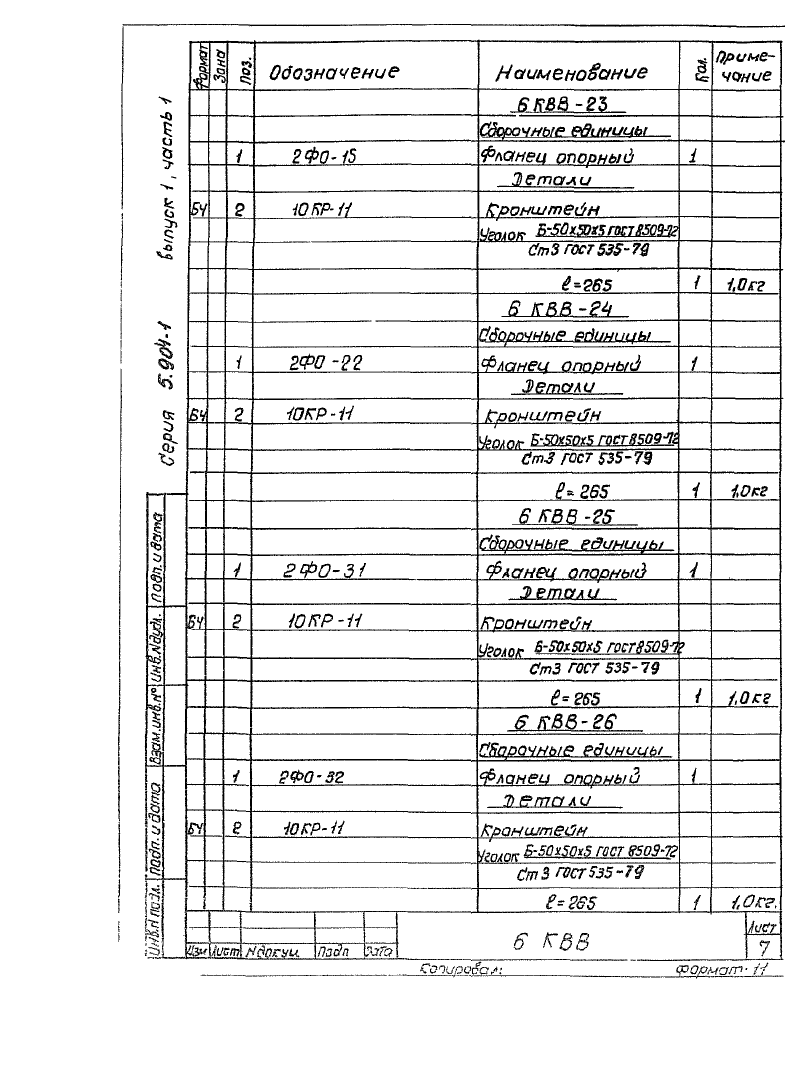 Формат Зона Поз. Обозначение Наименование Кол. Приме-
чание
6 КВВ-23
Сборочные единицы
1 2ФО-15 Фланец опорный 1
Детали
БЧ 2 10КР-11 Кронштейн
Уголок Б-50х50х5 ГОСТ 8509-72
Ст3 ГОСТ 535-79
ℓ=265 1 1,0кг
6 КВВ-24
Сборочные единицы
1 2ФО-22 Фланец опорный 1
Детали
БЧ 2 10КР-11 Кронштейн
Уголок Б-50х50х5 ГОСТ 8509-72
Ст3 ГОСТ 535-79
ℓ=265 1 1,0кг
6 КВВ-25
Сборочные единицы
1 2ФО-31 Фланец опорный 1
Детали
БЧ 2 10КР-11 Кронштейн
Уголок Б-50х50х5 ГОСТ 8509-72
Ст3 ГОСТ 535-79
ℓ=265 1 1,0кг
6 КВВ-26
Сборочные единицы
1 2ФО-32 Фланец опорный 1
Детали
БЧ 2 10КР-11 Кронштейн
Уголок Б-50х50х5 ГОСТ 8509-72
Ст3 ГОСТ 535-79
ℓ=265 1 1,0кг.
Серия 5.904-1 выпуск 1, часть 1
Инв.N подл. Подп. и дата Взам.инв.N° Инв.N дубл. Подп. и дата
Изм Лист N докум. Подп Дата
6 КВВ
Лист
7
Копировал: Формат 11